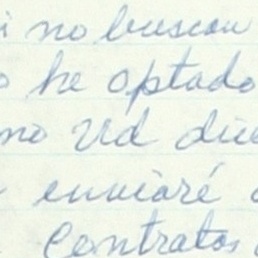 i no buscan
o he optado
mo Ud dice
enviaré
Contratos